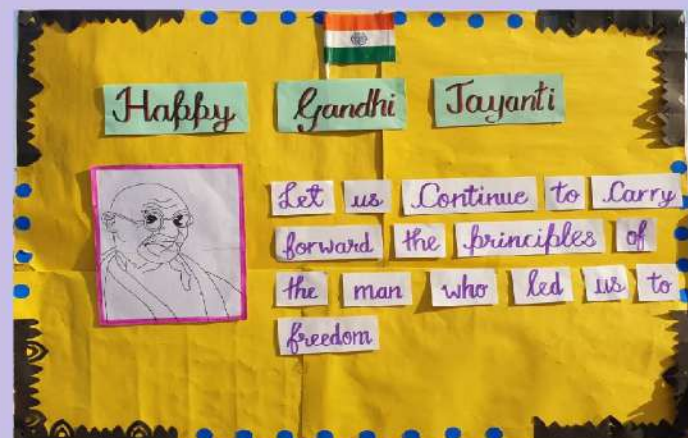 Happy Gandhi Jayanti
Let us Continue to Carry
forward the principles of
the man who led us to
freedom